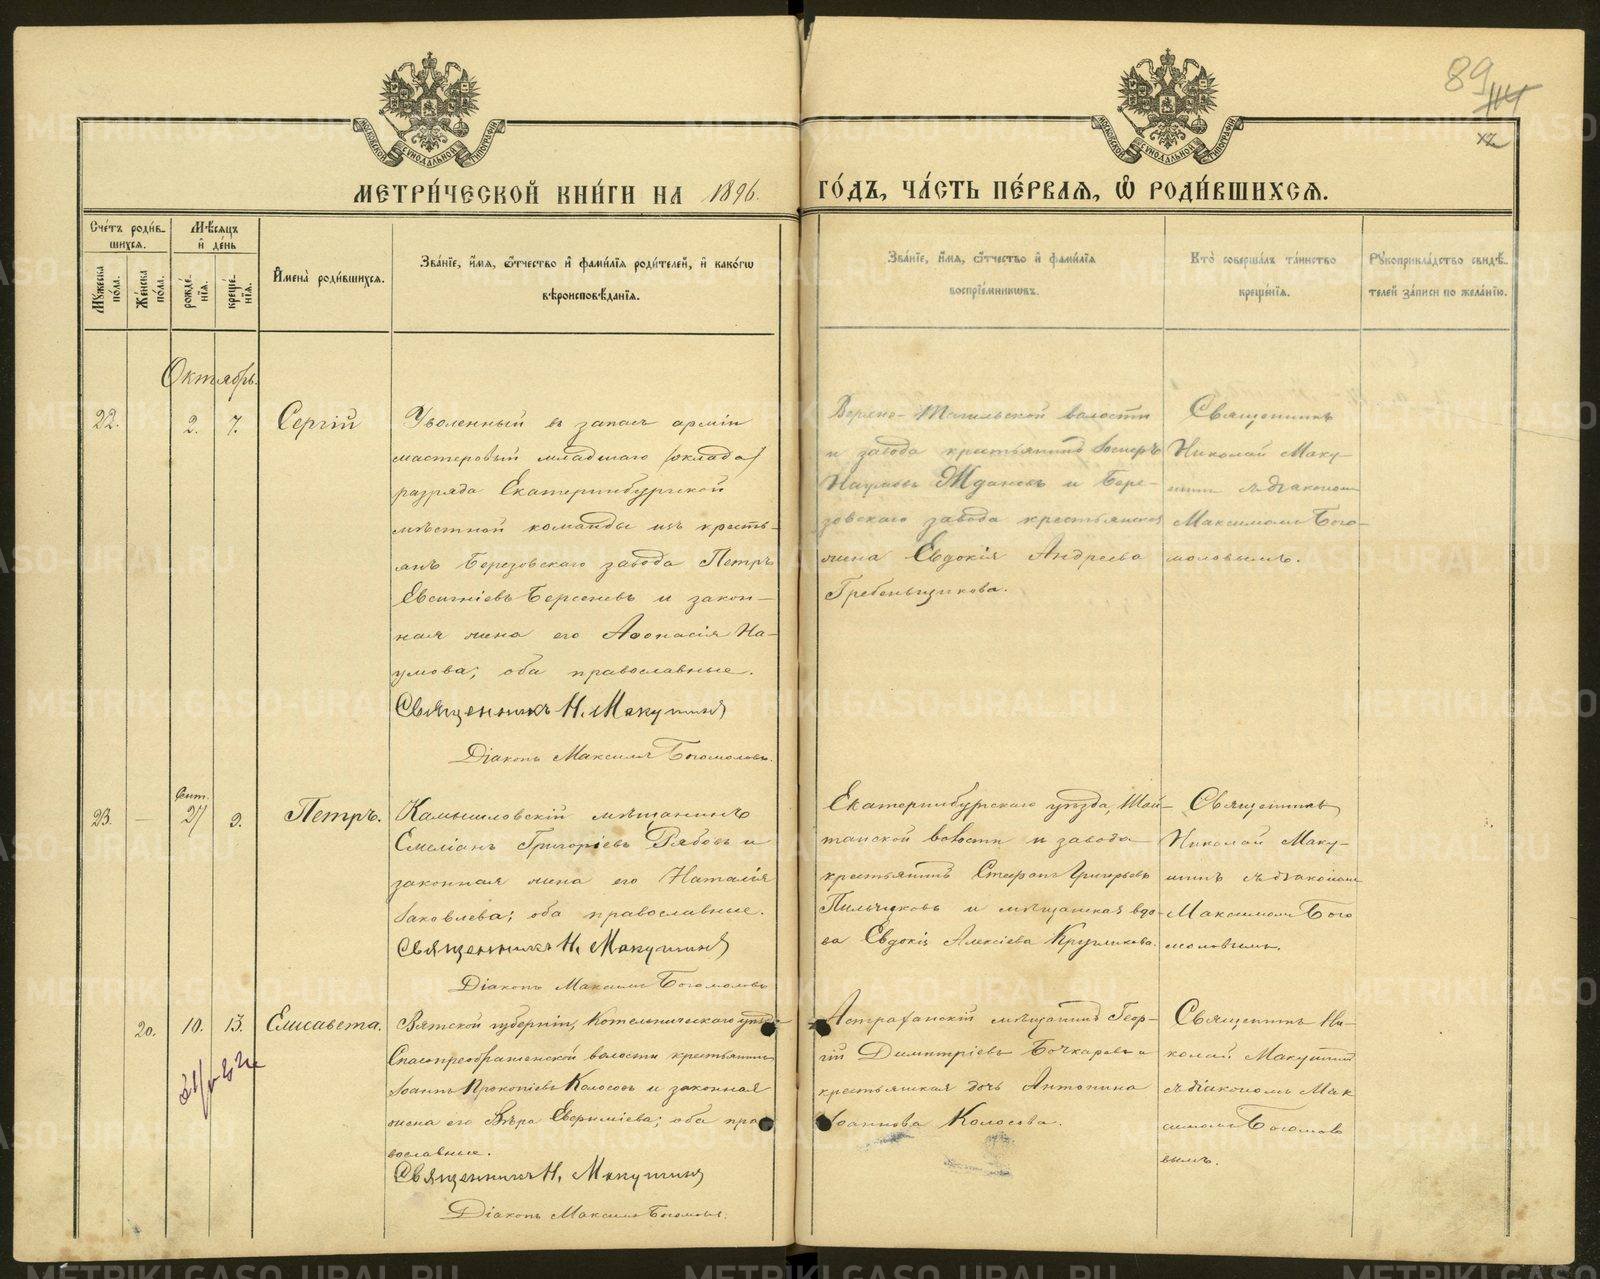 89
114
МОСКОВСКОЙ СѴНОДАЛЬНОЙ ТИПОГРАФІИ
МОСКОВСКОЙ СѴНОДАЛЬНОЙ ТИПОГРАФІИ
МЕТРИ́ЧЕСКОЙ КНИ́ГИ НА 1896 ГО́ДЪ, ЧА́СТЬ ПЕ́РВАѦ, Ѽ РОДИ́ВШИХСѦ.
Сче́тъ роди́в-
шихсѧ.
Мѣ́сѧцъ
и҆ де́нь
Мꙋ́жеска
по́ла.
Же́нска
пола.
рожде́-
нїѧ.
креще́-
нїѧ.
И҆мена̀ роди́вшихсѧ.
Зва́нїе, и҆́мѧ, ѻ҆́тчество и҆ фами́лїѧ роди́телей, и҆ како́гѡ
вѣроисповѣ́данїѧ.
Зва́нїе, и҆́мѧ, ѻ҆́тчество и҆ фами́лїѧ
воспрїе́мниковъ.
Кто̀ соверша́лъ та́инство
креще́нїѧ.
Рꙋкоприкла́дство свидѣ́-
телей за́писи по жела́нїю.
Октябрь.
22.
2.
7.
Сергій
Уволенный въ запасъ арміи
мастеровый младшаго (оклада)
разряда Екатеринбургской
мѣстной команды изъ кресть-
янъ Березовскаго завода Петръ
Евсигніевъ Берсеневъ и закон-
ная жена его Аѳанасія На-
умова; оба православные.
Священникъ Н. Макушинъ
Діаконъ Максимъ Богомоловъ.
Верхне-Тагильской волости
и завода крестьянинъ
Наумовъ Ждановъ и Бере-
зовскаго завода крестьянская
жена Евдокія Андреева
Гребеньщикова.
Священникъ
Николай Маку-
шинъ съ діакономъ
Максимомъ Бого-
моловымъ.
23.
—
Сент.
27
2.
Петръ.
Камышловскій мѣщанинъ
Емеліанъ Григоріевъ Рябовъ и
законная жена его Наталія
Іаковлева; оба православные.
Священникъ Н. Макушинъ
Діаконъ Максимъ Богомоловъ
Екатеринбургскаго уѣзда, Шай-
танской волости и завода
крестьянинъ Стефанъ Григорьевъ
Пильщиковъ и мѣщанская вдо-
ва Евдокія Алексіева Кругликова.
Священникъ
Николай Маку-
шинъ съ діакономъ
Максимомъ Бого
моловымъ.
20.
10.
13.
Елисавета.
Вятской губерніи, Котельническаго уѣзда
Спасопреображенской волости крестьянинъ
Іоаннъ Прокопіевъ Колосовъ и законная
жена его Вѣра Евфиміева; оба пра
вославные.
Священникъ Н. Макушинъ
Діаконъ Максимъ Богомоловъ.
Астраханскій мѣщанинъ Геор-
гій Димитріевъ Бочкаревъ и
крестьянская дочь Антонина
Іоаннова Колосова.
Священникъ Ни-
колай Макушинъ
съ діакономъ Мак
симомъ Богомоло
вымъ.
METRIKI.GASO-URAL.RU